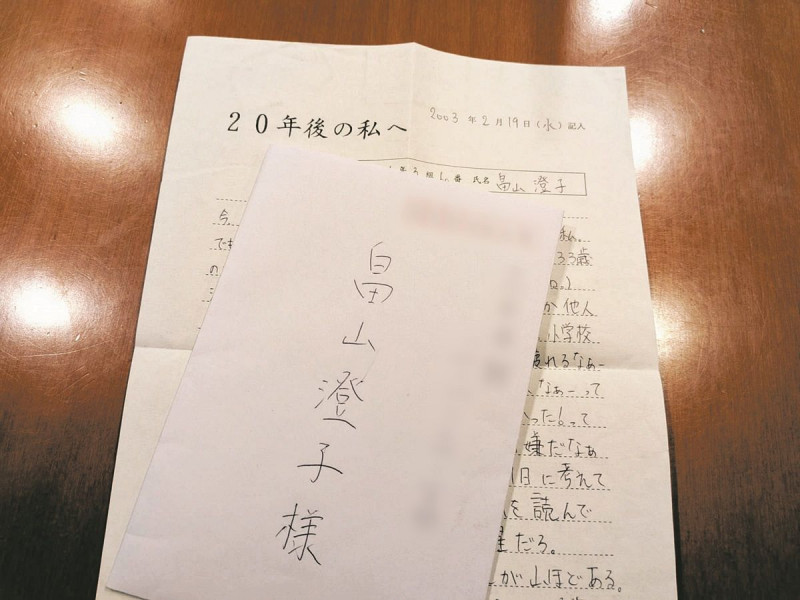 20年後の私へ
2003年2月19日(水)記入
年3組 番 氏名 畠山 澄子
今
私。
でも
33歳
の
か他人
小学校
疲れるなぁー
なぁーって
った!。って
嫌だなぁ
1日に考えて
を読んで
だろ。
が山ほどある。
畠山澄子様